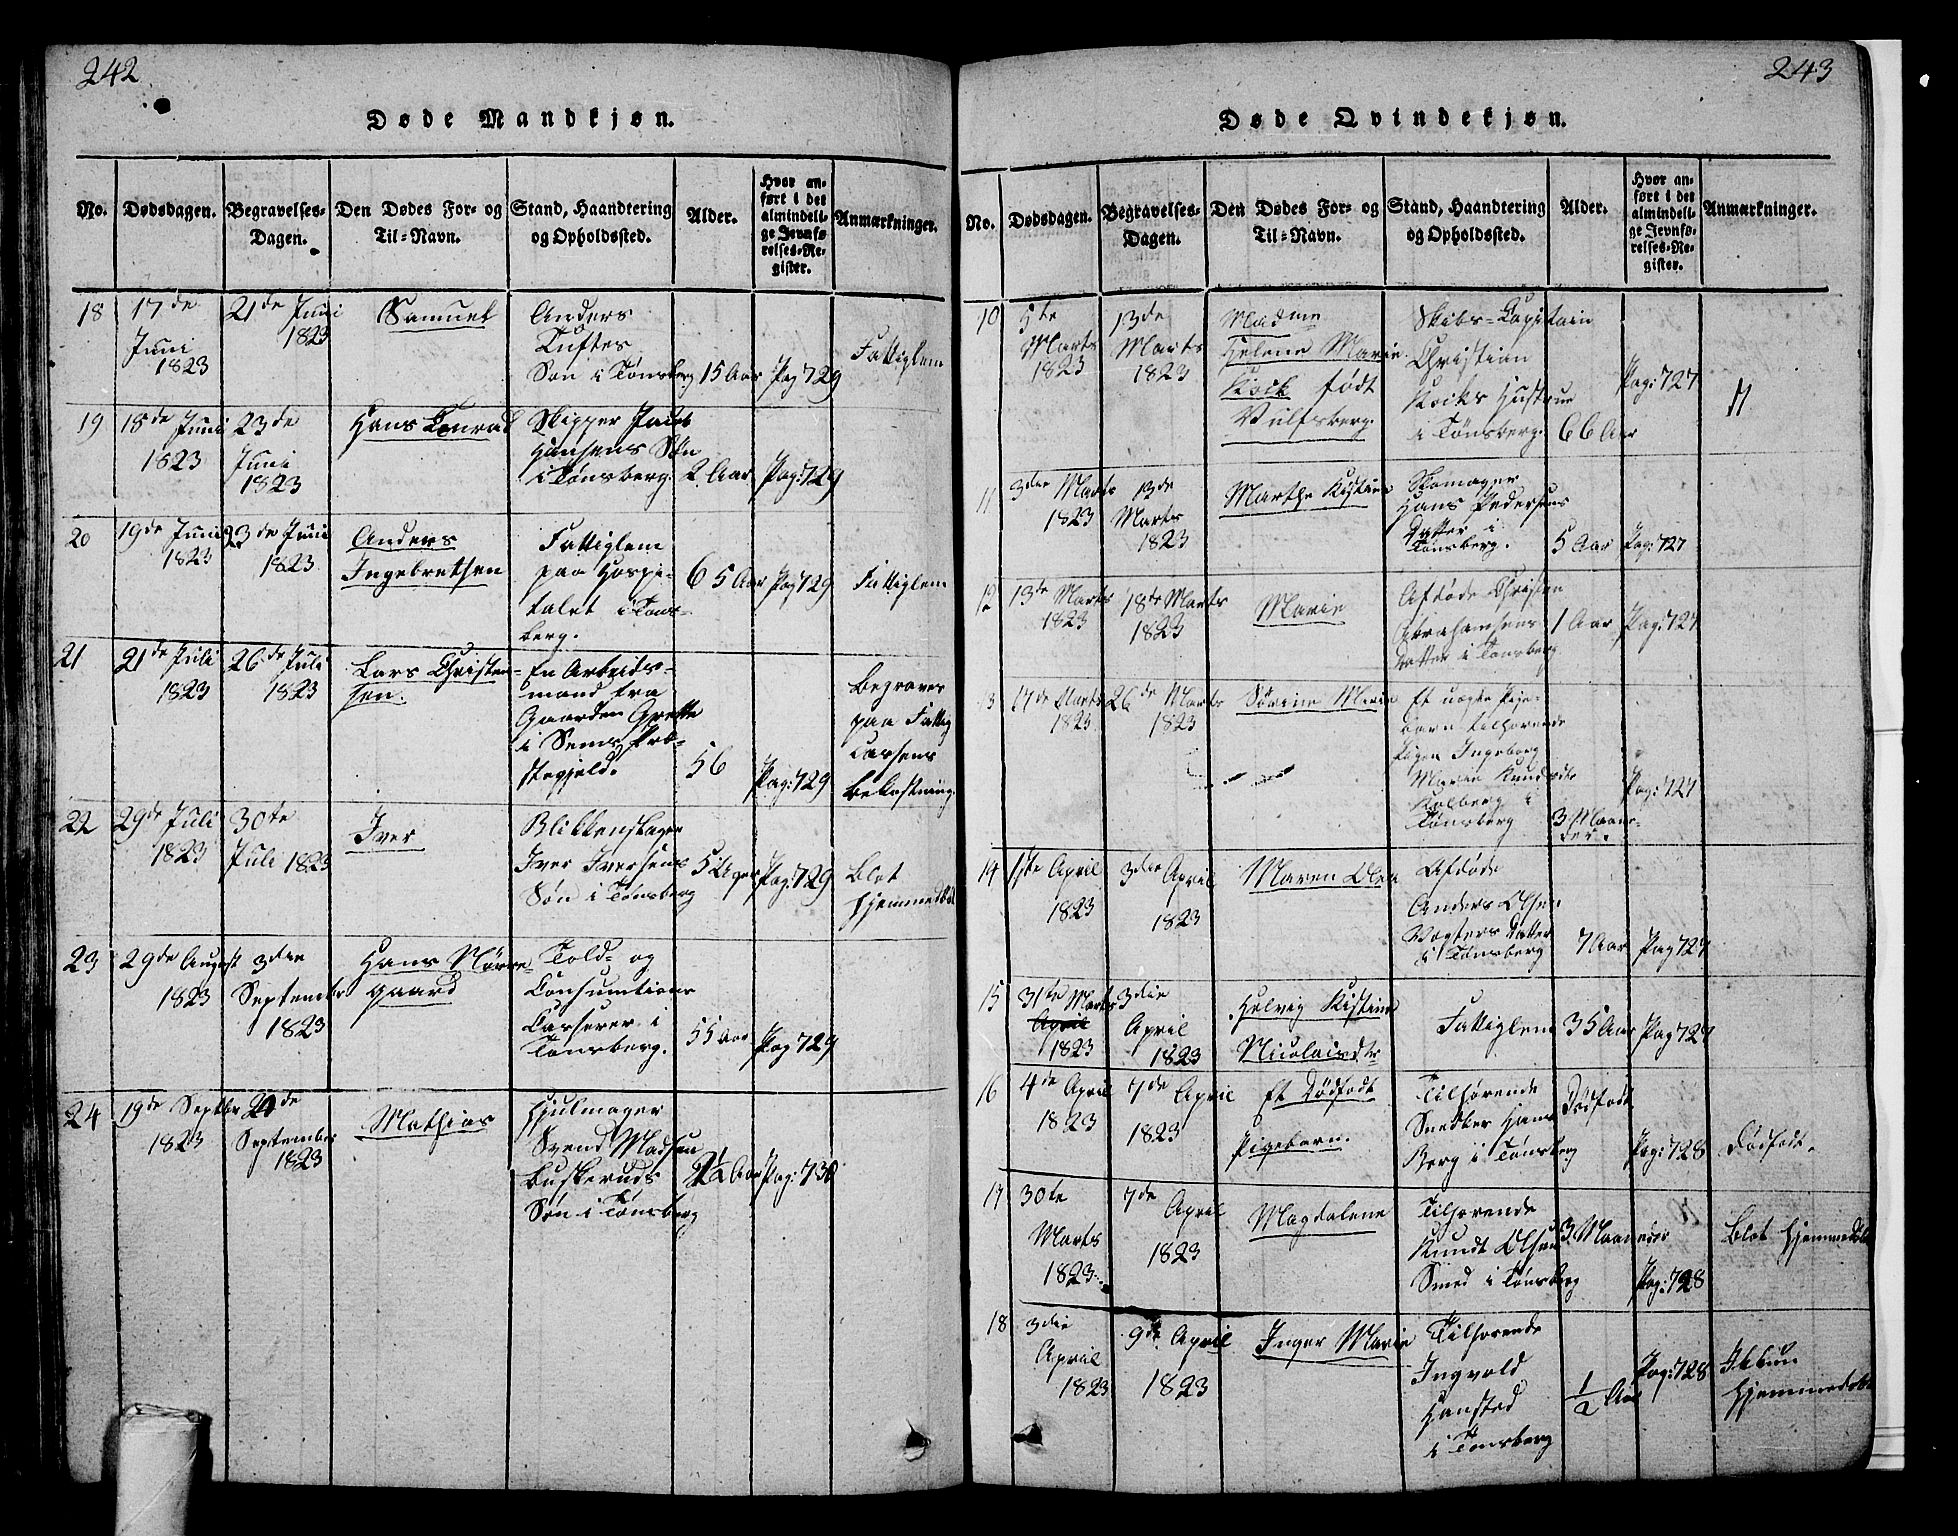 242
Døde Mandkjøn.
No.
Dødsdagen.
Begravelses-
Dagen.
Den Dødes For- og
Til-Navn.
Stand, Haandtering
og Opholdssted.
Alder.
Hvor an-
ført i det
almindeli-
ge Jevnfø-
relses-Re-
gister.
Anmærkninger.
18
17de
Juni
1823
21de Juni
1823
Samuel
Anders
Tuftes
Søn i Tønsberg
15 Aar
Pag 729
Fattiglem
19
18de Juni
1823
23de
Juni
1823
Hans Conrad
Skipper Jacob
Hansens Søn
i Tønsberg.
2 Aar
Pag: 729
20
19de Juni
1823
23de Juni
1823
Anders
Ingebretsen
Fattiglem
paa Hospi-
talet i Tøns-
berg.
65 Aar
Pag 729
Fattiglem
21
21de Juli
1823
26de Juli
1823
Lars Christen-
sen.
En Arbeids-
mand fra
Gaarden Grette
i Sems Præ-
stegjeld.
56
Pag: 729
Begraves
paa Fattig
Cassens
Bekostning.
22
29de Juli
1823
30te
Juli 1823
Iver
Blikkenslager
Iver Iversens
Søn i Tønsberg
5 Uger
Pag: 729
Blot
hjemmedøbt
23
29de August
1823
3die
September
1823
Hans Nørre-
gaard
Told- og
Consumtions
Casserer i
Tønsberg.
55 Aar
Pag 729
24
19de Septbr
1823
September
1823
Mathias
Hjulmager
Svend Madsen
Buskeruds
Søn i Tønsberg
Pag: 730
243
Døde Qvindekjøn.
No.
Dødsdagen.
Begravelses-
Dagen.
Den Dødes For- og
Til-Navn.
Stand, Haandtering
og Opholdssted.
Alder.
Hvor an-
ført i det
almindeli-
ge Jevnfø-
relses-Re-
gister.
Anmærkninger.
10
5te
Marts
1823
13de
Marts
1823
Madme
Helene Marie
Kock født
Vulfsberg.
Skibs-Capitain
Christian
Kocks Hustrue
i Tønsberg.
66 Aar
Pag: 727
11
3die Marts
1823
13de
Marts
1823
Marthe Kistine
Skomager
Hans Pedersens
Datter i
Tønsberg.
5 Aar
Pag: 727
12
13de Marts
1823
18de Marts
1823
Marie
Afdøde Christen
Abrahamsens
Datter i Tønsberg
1 Aar
Pag: 727
13
17de Marts
1823
26de Marts
1823
Sørine Marie
Et uægte Pige-
barn tilhørende
Pigen Ingeborg
Marie Knudsdtr
Kolberg i
Tønsberg
3 Maane-
der.
Pag: 727
14
1ste April
1823
3die April
1823
Maren Olea
Afdøde
Anders Olsen
Vogters Datter
i Tønsberg
7 Aar
Pag 727
15
31te Marts
April
1823
3die
April
1823
Helvig Kistine
Nicolaisdtr
Fattiglem
35 Aar
Pag 727
16
4de April
1823
7de April
1823
Et Dødfødt
Pigebarn.
Tilhørende
Snedker Hans
Berg i Tønsberg
Dødfødt
Pag: 728
Dødfødt.
17
30te
Marts
1823.
7de
April
1823
Magdalene
Tilhørende
Knudt Olsen
Smed i Tønsberg
3 Maaneder
Pag: 728
Blot hjemmedøbt
18
3die
April
1823
9de April
1823
Inger Marie
Tilhørende
Ingvold
Hansted
i Tønsberg
1/2 Aar
Pag: 728
hjemmedøbt